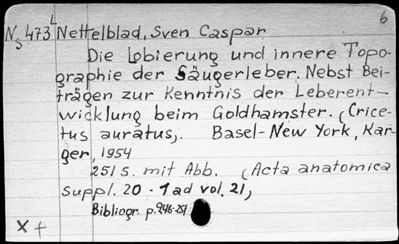 6
L
N5 473 Nettelblad, Sven Caspar
Die Lobierung und innere Topo-
graphie der Säugerleber. Nebst Bei-
trägen zur Kenntnis der Leberent-
wicklung beim Goldhamster. (Crice-
tus auratus). Basel-New York, Kar-
ger, 1954
251 s. mit Abb. (Acta anatomica
suppl. 20 - 1 ad vol. 21)
Bibliogr. p. 246-251
X +